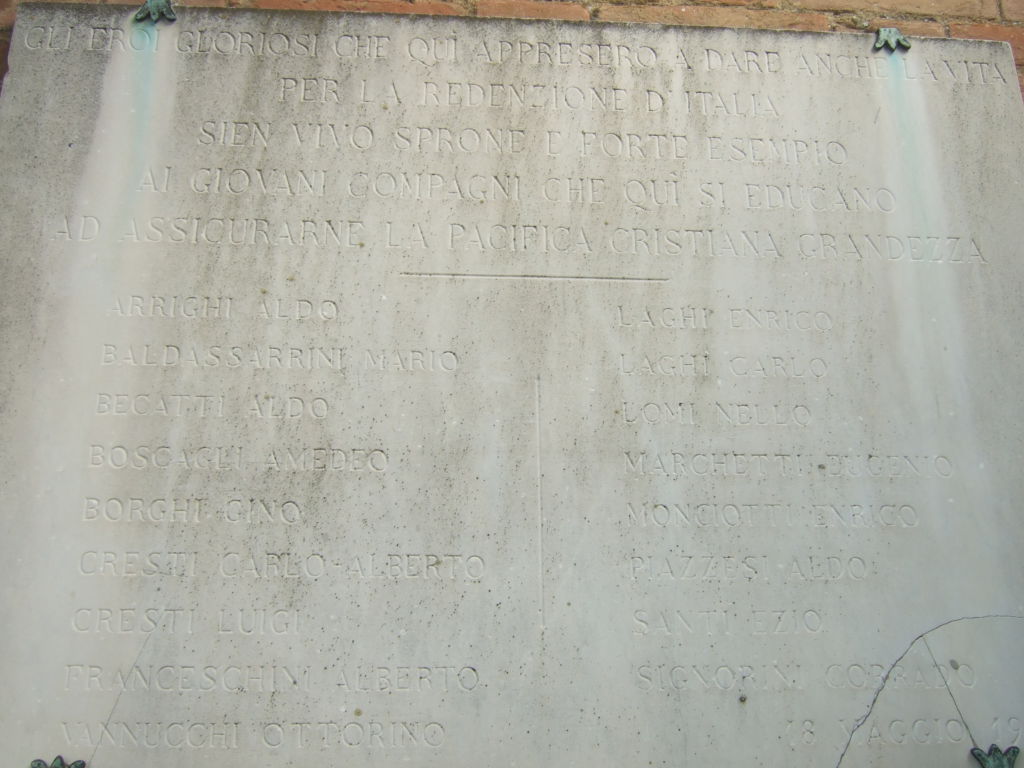 GLI EROI GLORIOSI CHE QUÌ APPRESERO A DARE ANCHE LA VITA
PER LA REDENZIONE D'ITALIA
SIEN VIVO SPRONE E FORTE ESEMPIO
AI GIOVANI COMPAGNI CHE QUÌ SI EDUCANO
AD ASSICURARNE LA PACIFICA CRISTIANA GRANDEZZA
ARRIGHI ALDO
BALDASSARRINI MARIO
BECATTI ALDO
BOSCAGLI AMEDEO
BORGHI GINO
CRESTI CARLO ALBERTO
CRESTI LUIGI
FRANCESCHINI ALBERTO
VANNUCCHI OTTORINO
LAGHI ENRICO
LAGHI CARLO
LOMI NELLO
MARCHETTI EUGENIO
MONCIOTTI ENRICO
PIAZZESI ALDO
SANTI EZIO
SIGNORINI CORRADO
18 MAGGIO 19